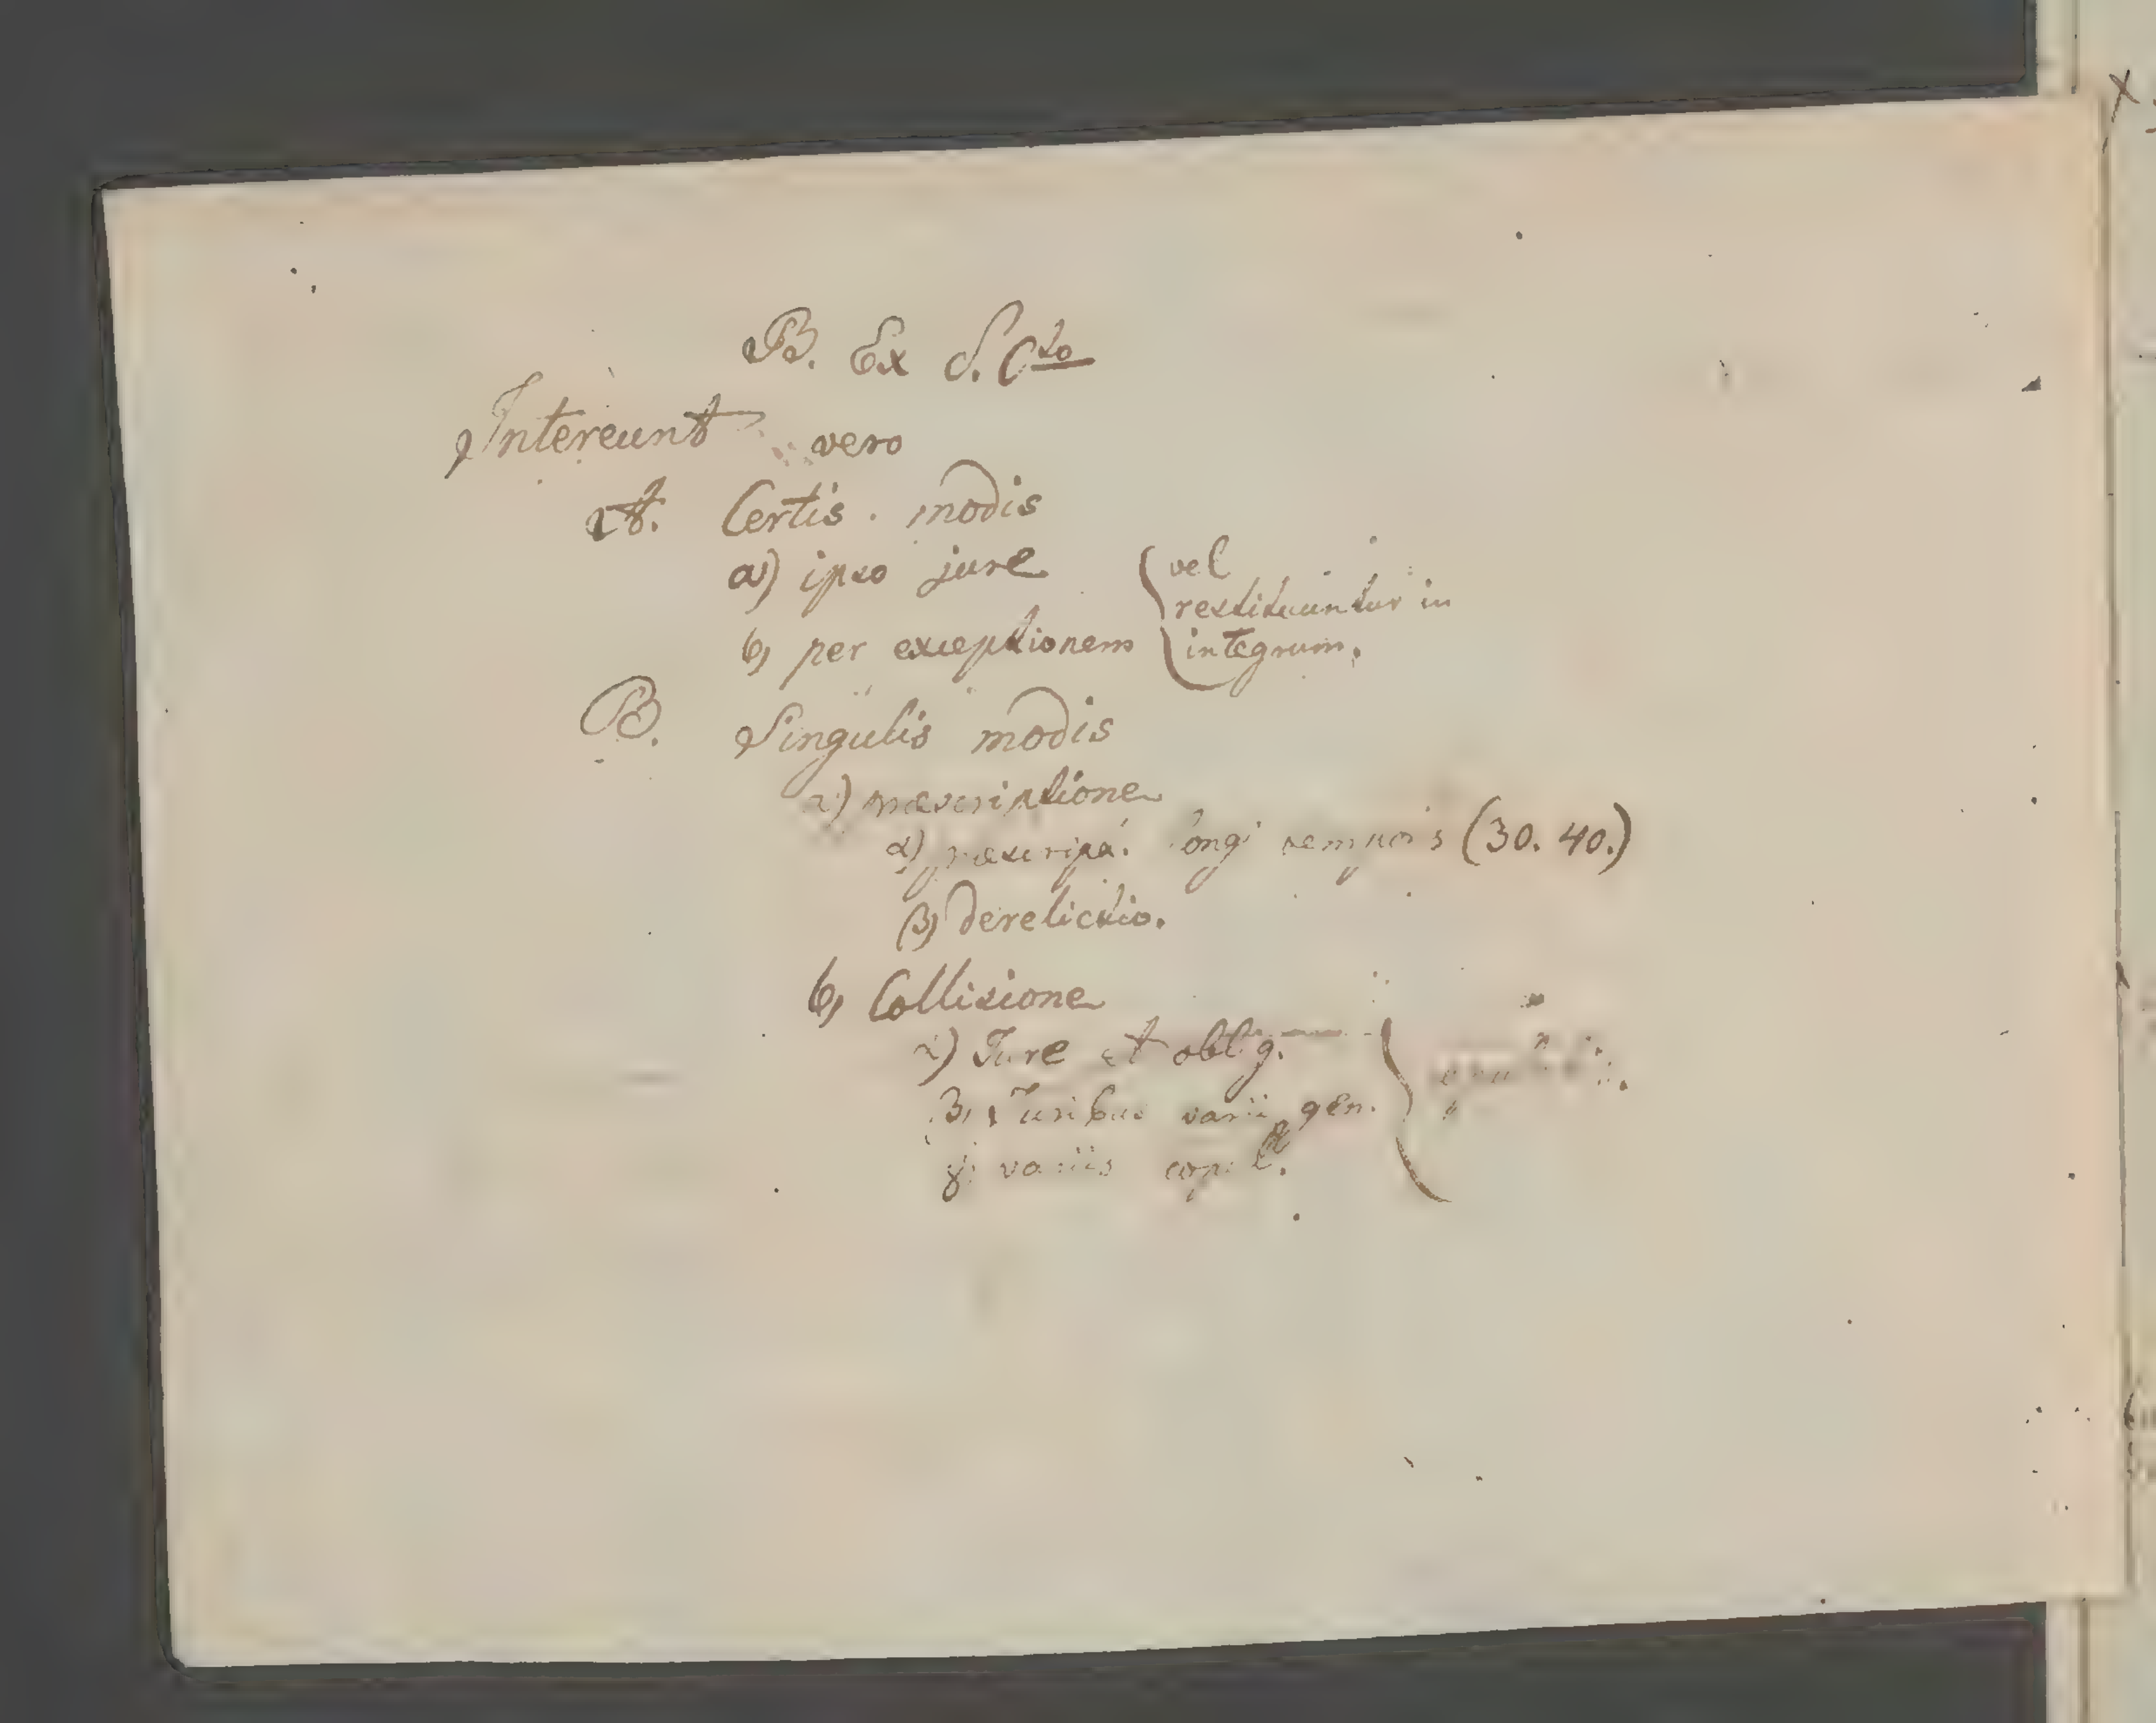 B. Ex S. Cto
Intereunt vero
A. Certis modis
a) ipso jure
b) per exceptionem
vel
restituuntur in
integrum.
B. Singulis modis
a) præscriptione
α) longi temporis (30. 40.)
β) derelictio.
b) Collisione
α) Jure et oblig.
β) Juribus varii gen.
γ) variis